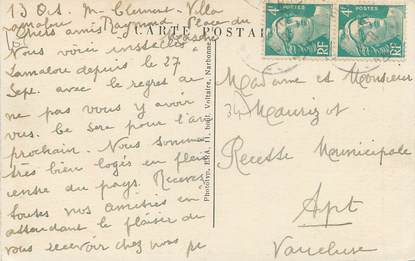 13 Oct. Mr Clement - Villa
Raymond - Place du
Chers amis
CARTE POSTALE
Nous voici installés
Lamalou depuis le 27
Sept. avec le regret de
ne pas vous y avoir
vus. Ce sera pour l'an
prochain. Nous sommes
très bien logés en plein
centre du pays. Recevez
toutes nos amitiés en
attendant le plaisir de
vous recevoir chez nous
Phototyp. 11, boul. Voltaire, Narbonne
4F
RF
4F
RF
Madame et Monsieur
Recette Municipale
Apt
Vaucluse